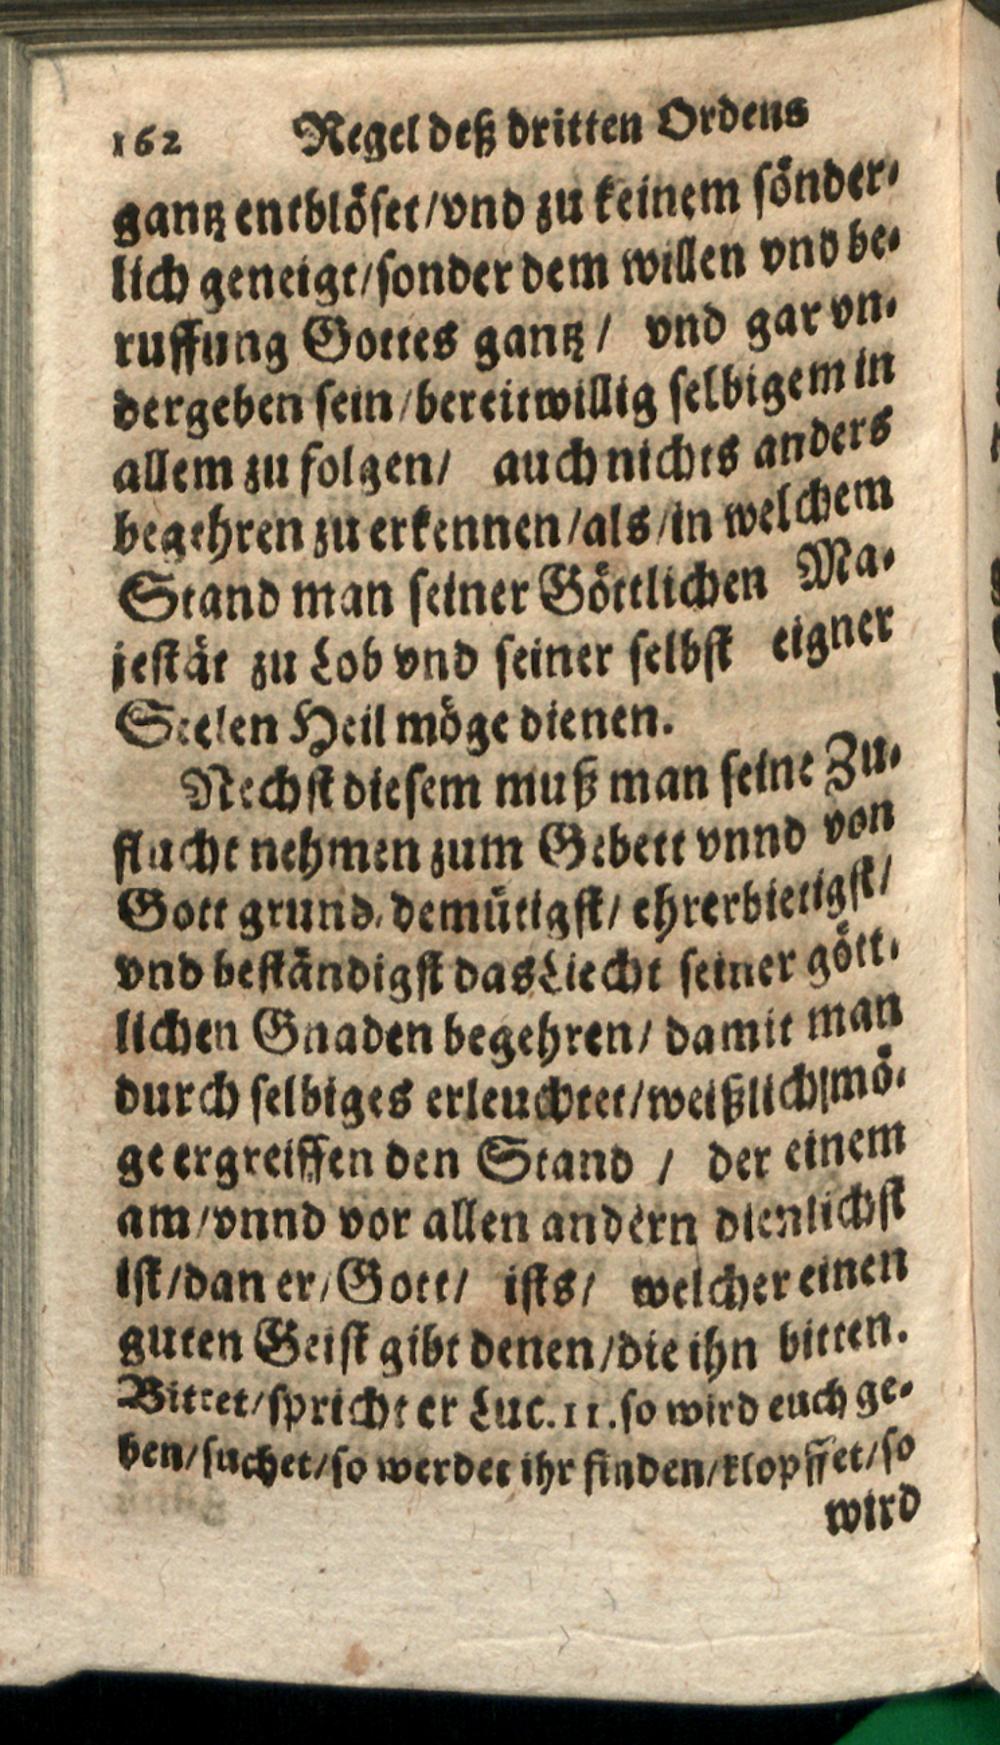 162 Regel deß dritten Ordens
gantz entblöset/vnd zu keinem sönder-
lich geneigt/sonder dem willen vnd be-
ruffung Gottes gantz/ vnd gar vn-
dergeben sein/bereitwillig selbigem in
allem zu folgen/ auch nichts anders
begehren zu erkennen/als/in welchem
Stand man seiner Göttlichen Ma-
jestät zu Lob vnd seiner selbst eigner
Seelen Heil möge dienen.
Nechst diesem muß man seine Zu-
flucht nehmen zum Gebett vnnd von
Gott grund-demütigst/ ehrerbietigst/
vnd beständigst das Liecht seiner gött-
lichen Gnaden begehren/ damit man
durch selbiges erleuchtet/weißlich/mö-
ge ergreiffen den Stand / der einem
am/vnnd vor allen andern dienlichst
ist/dan er/Gott/ ists/ welcher einen
guten Geist gibt denen/die ihn bitten.
Bittet/spricht er Luc. 11. so wird euch ge-
ben/suchet/so werdet ihr finden/klopffet/so
wird